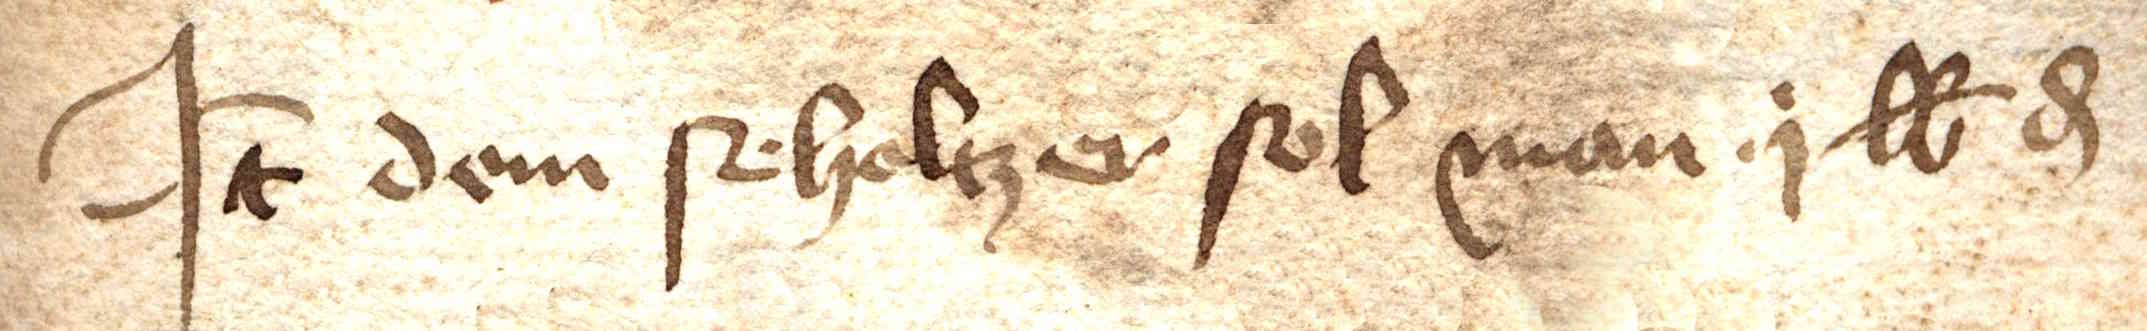 It dem scheltzer sol man ij lb d